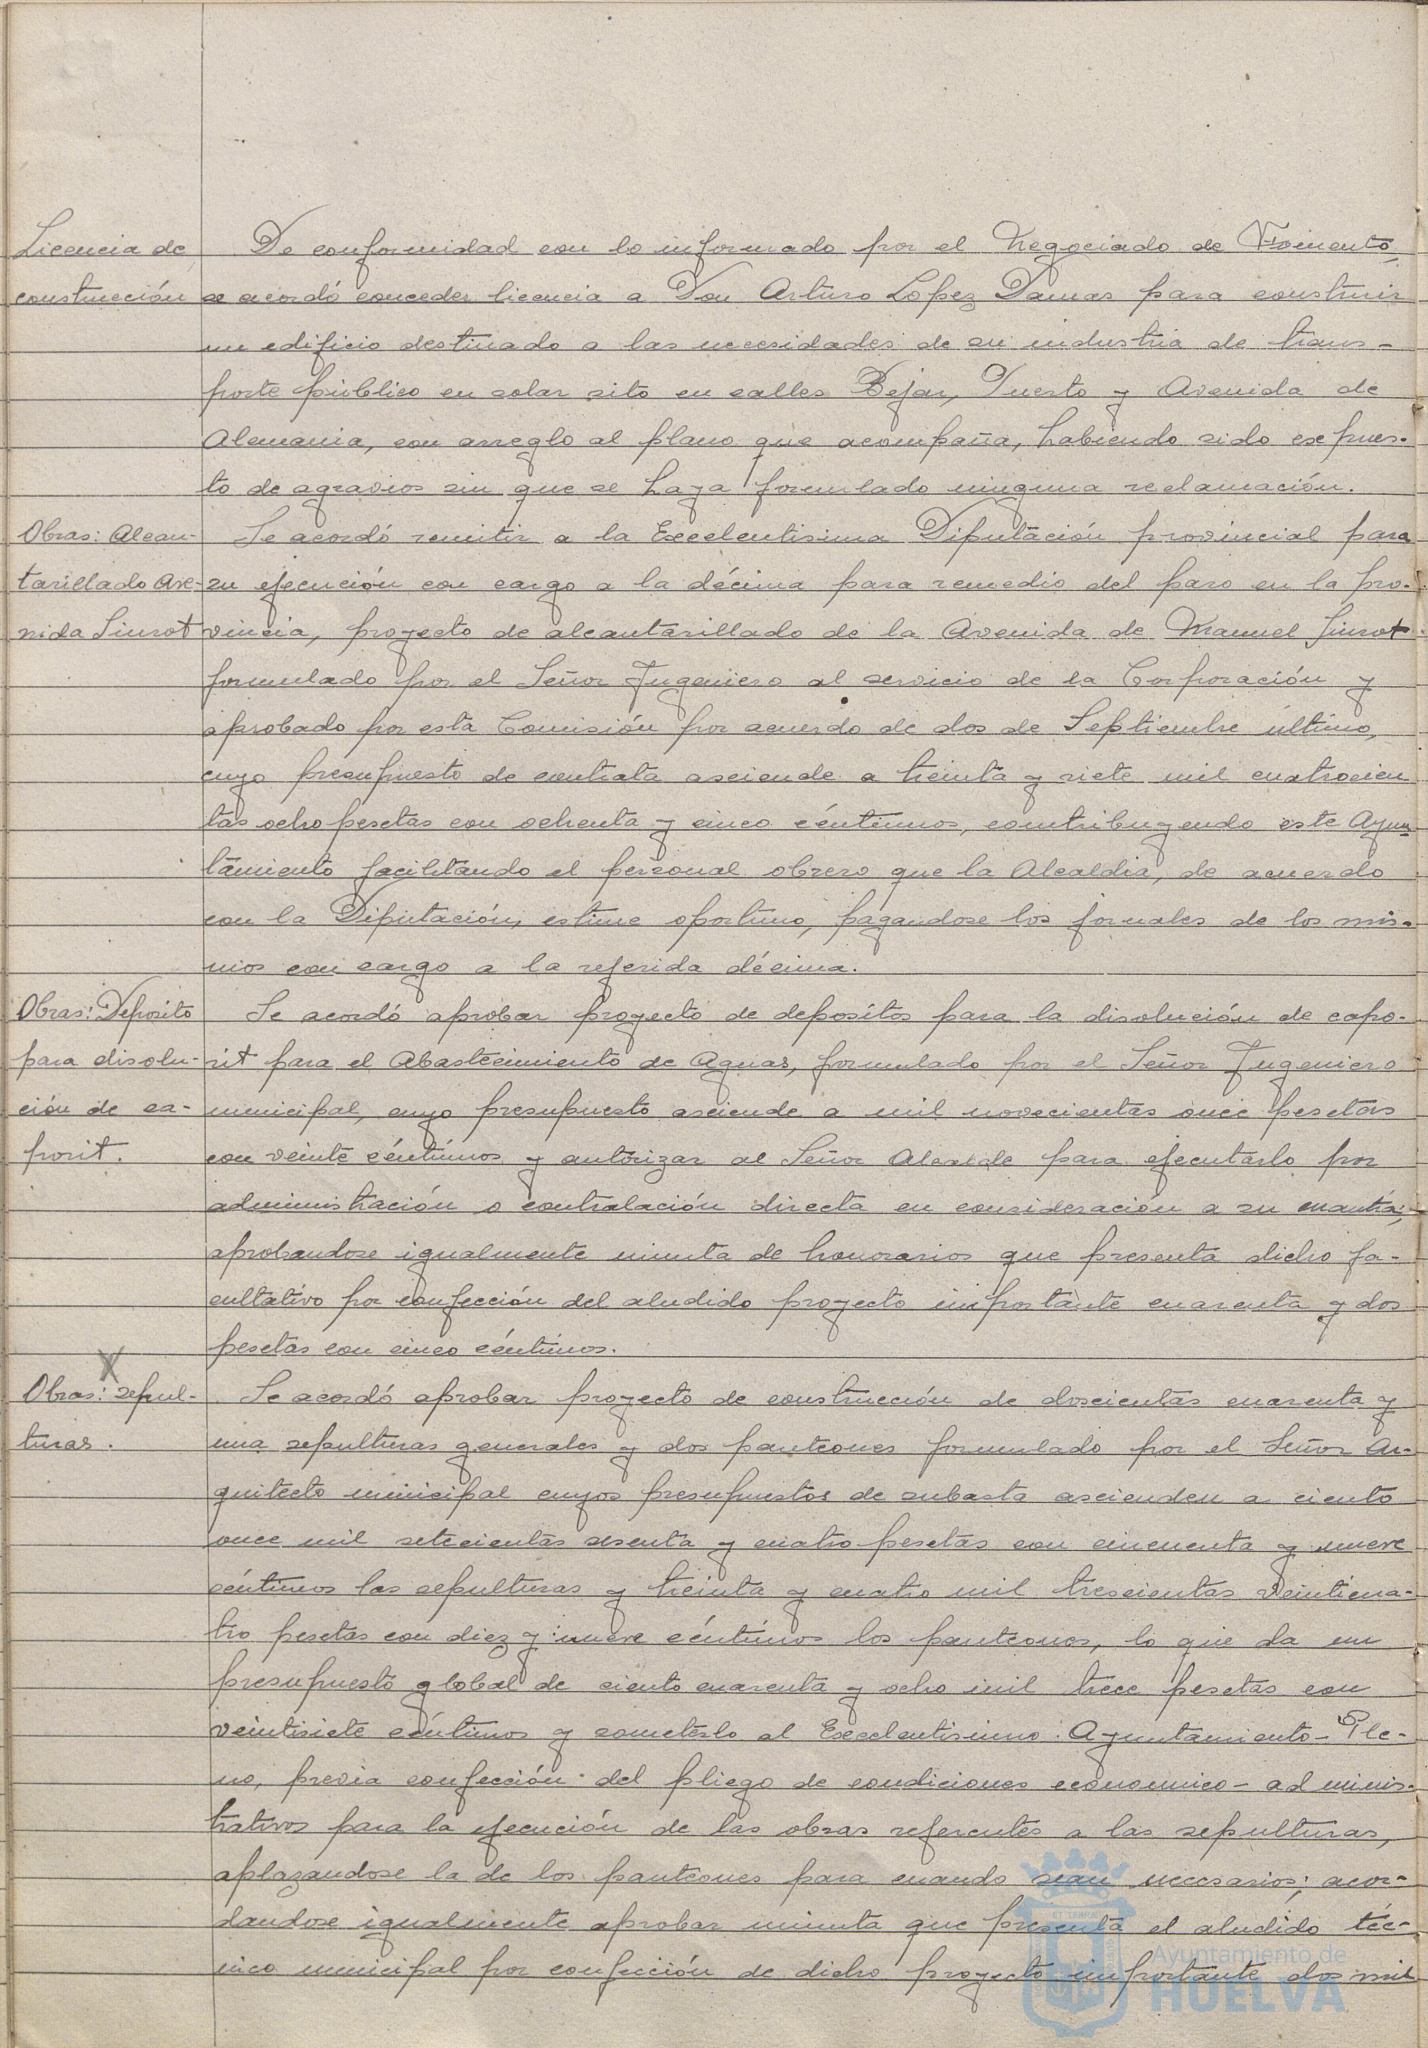 Licencia de
construcción
De conformidad con lo informado por el Negociado de Fomento,
se acordó conceder licencia a Don Arturo Lopez Damas para construir
un edificio destinado a las necesidades de su industria de trans-
porte público en solar sito en calles Bejar, Puerto y Avenida de
Alemania, con arreglo al plano que acompaña, habiendo sido expues-
to de agravios sin que se haya formulado ninguna reclamación.
Obras: Alcan-
tarillado Ave-
nida Siurot
Se acordó remitir a la Excelentisima Diputación provincial para
su ejecución con cargo a la décima para remedio del paro en la pro-
vincia, proyecto de alcantarillado de la Avenida de Manuel Siurot
formulado por el Señor Ingeniero al servicio de la Corporación y
aprobado por esta Comisión por acuerdo de dos de Septiembre último,
cuyo presupuesto de contrata asciende a treinta y siete mil cuatrocien
tas ocho pesetas con ochenta y cinco céntimos, contribuyendo este Ayun
tamiento facilitando el personal obrero que la Alcaldia, de acuerdo
con la Diputación, estime oportuno, pagandose los jornales de los mis-
mos con cargo a la referida décima.
Obras: Deposito
para disolu-
ción de ca-
porit.
Se acordó aprobar proyecto de depositos para la disolución de capo-
rit para el Abastecimiento de Aguas, formulado por el Señor Ingeniero
municipal, cuyo presupuesto asciende a mil novecientas once pesetas
con veinte céntimos y autorizar al Señor Alcalde para ejecutarlo por
administración o contratación directa en consideración a su cuantia;
aprobandose igualmente minuta de honorarios que presenta dicho fa-
cultativo por confección del aludido proyecto importante cuarenta y dos
pesetas con cinco céntimos.
X
Obras: sepul-
turas.
Se acordó aprobar proyecto de construcción de doscientas cuarenta y
una sepulturas generales y dos panteones formulado por el Señor Ar-
quitecto municipal cuyos presupuestos de subasta ascienden a ciento
once mil setecientas sesenta y cuatro pesetas con cincuenta y nueve
céntimos las sepulturas y treinta y cuatro mil trescientas veinticua-
tro pesetas con diez y nueve céntimos los panteones, lo que da un
presupuesto global de ciento cuarenta y ocho mil trece pesetas con
veintisiete céntimos y someterlo al Excelentisimo Ayuntamiento-Ple-
no, previa confección del pliego de condiciones economico-adminis-
trativos para la ejecución de las obras referentes a las sepulturas,
aplazandose la de los panteones para cuando sean necesarios; acor-
dandose igualmente aprobar minuta que presenta el aludido téc-
nico municipal por confección de dicho proyecto importante dos mil
Ayuntamiento de
HUELVA